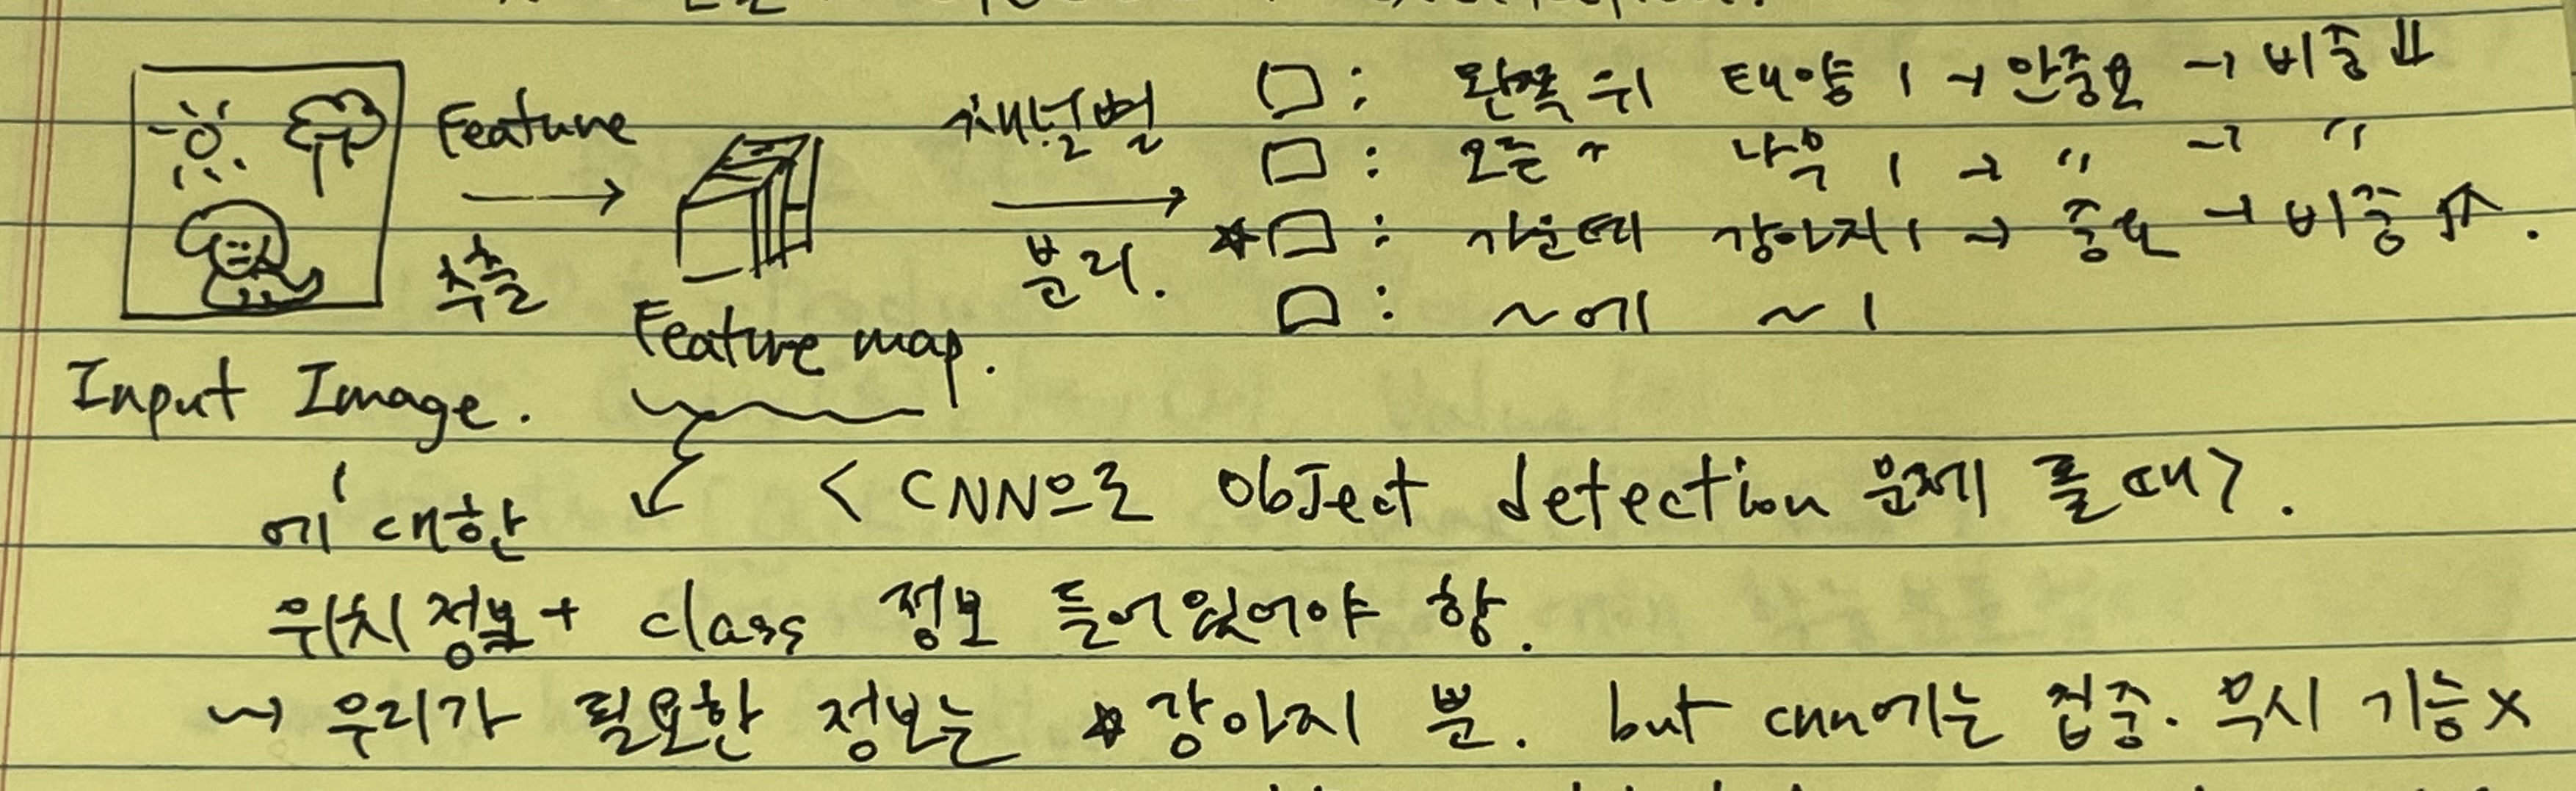 Feature
추출
Feature map.
Input Image.
채널별
분리.
□: 왼쪽 위 태양 1 → 안중요 → 비중 ⇓
□: 오른 〃 나무 1 → 〃 → 〃
☆□: 가운데 강아지 1 → 중요 → 비중 ⇑.
□: ~에 ~ 1
에 대한
< CNN으로 Object detection 문제 풀 때>.
위치 정보 + class 정보 들어있어야 함.
↝ 우리가 필요한 정보는 ☆강아지 뿐. but cnn에는 집중. 무시 기능 X